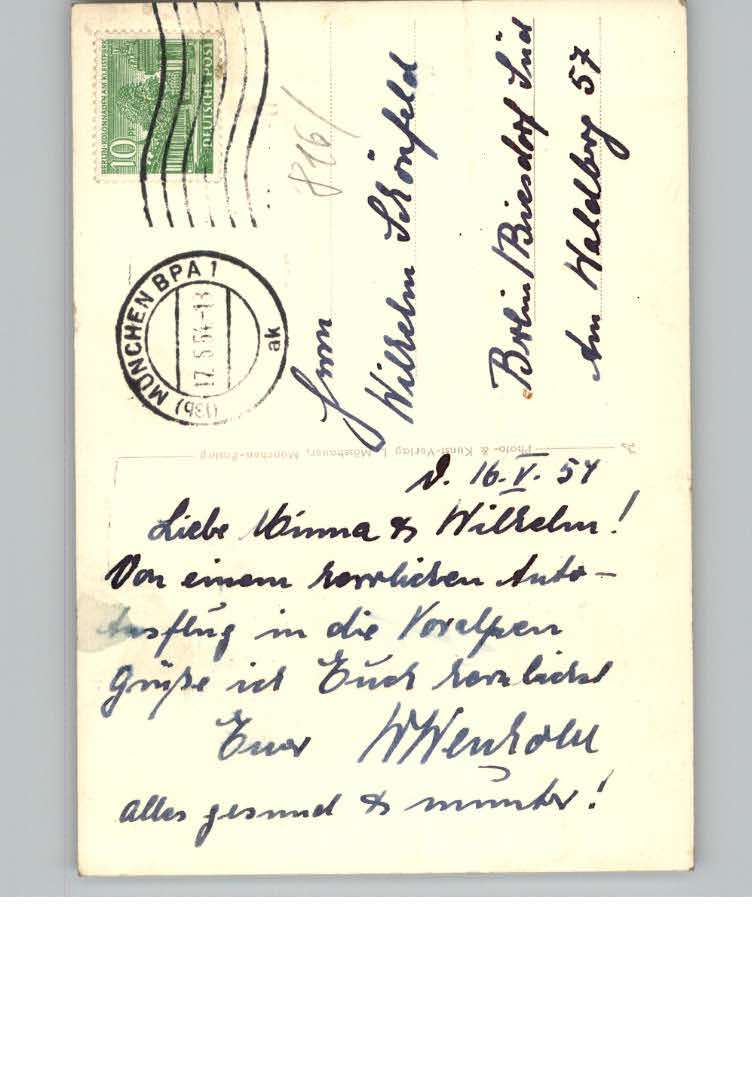 BERLIN·KOLONNADEN AM KLEISTPARK
10 PF
DEUTSCHE POST
(13b) MÜNCHEN BPA 1
17.5.54-13
ak
816/
Herrn
Wilhelm Schönfeld
Berlin/Biesdorf Süd
Am Waldberg 57
Photo- & Kunst-Verlag
München-Pasing
d. 16.V.54
Liebe Minna & Wilhelm!
Von einem herrlichen Auto-
Ausflug in die Voralpen
grüße ich Euch herzlichst
Euer
alles gesund & munter!